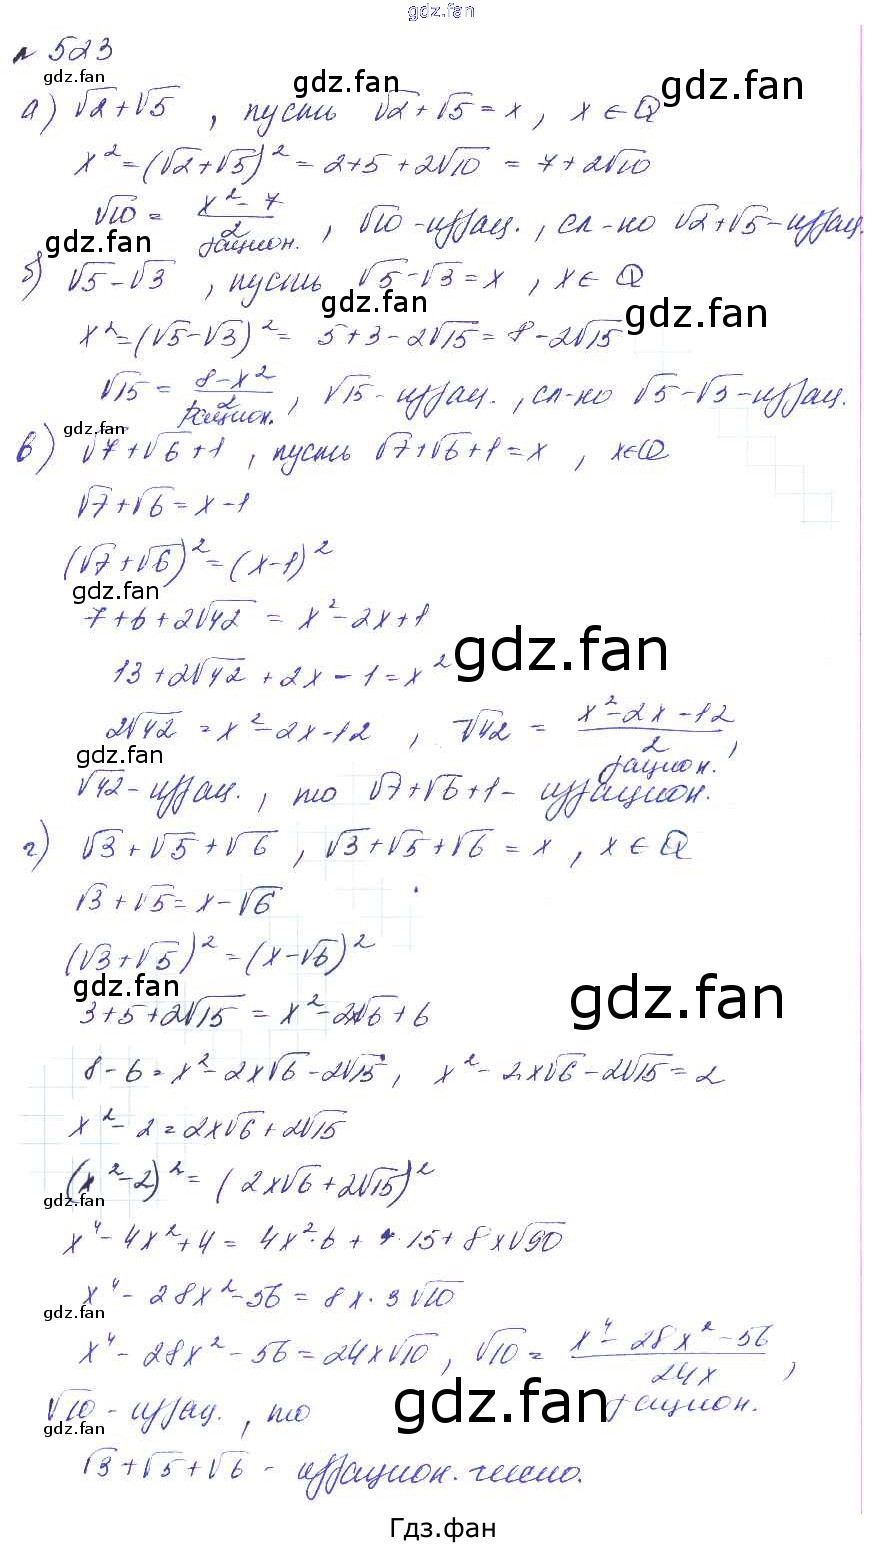 gdz.fan
№ 523
gdz.fan gdz.fan gdz.fan
а) √2+√5 , пусть √2+√5=x, x∈Q
x²=(√2+√5)²=2+5+2√10 = 7+2√10
√10 = (x²-7)/2 , √10 -иррац., сл-но √2+√5-иррац.
gdz.fan рацион.
б) √5-√3 , пусть √5-√3=x , x∈ Q
gdz.fan gdz.fan
x²=(√5-√3)²= 5+3-2√15=8-2√15
√15 = (8-x²)/2 , √15 - иррац. , сл-но √5-√3-иррац.
рацион.
gdz.fan
в) √7+√6+1 , пусть √7+√6+1=x , x∈Q
√7+√6=x-1
(√7+√6)²=(x-1)²
gdz.fan
7+6+2√42 = x²-2x+1
gdz.fan
13+2√42+2x-1=x²
2√42 = x²-2x-12 , √42 = (x²-2x-12)/2 ,
gdz.fan рацион.
√42-иррац., то √7+√6+1- иррацион.
г) √3+√5+√6 , √3+√5+√6 = x , x∈Q
√3+√5=x-√6
(√3+√5)²=(x-√6)²
gdz.fan gdz.fan
3+5+2√15 = x²-2x√6+6
8-6=x²-2x√6-2√15 , x²-2x√6-2√15=2
x²-2=2x√6+2√15
(x²-2)²=(2x√6+2√15)²
gdz.fan
x⁴-4x²+4 = 4x²·6+4·15+8x√90
x⁴-28x²-56=8x·3√10
gdz.fan
x⁴-28x²-56=24x√10, √10 = (x⁴-28x²-56)/24x ,
gdz.fan рацион.
√10 -иррац., то
gdz.fan
√3+√5+√6 - иррацион. число.
Гдз.фан